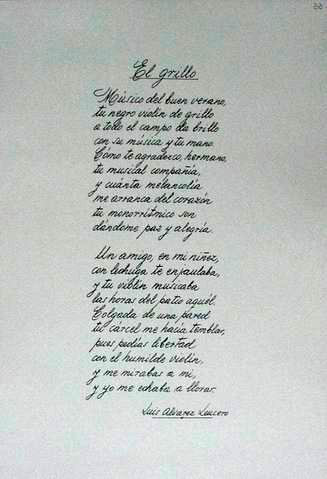 El grillo
Músico del buen verano,
tu negro violín de grillo
a todo el campo da brillo
con su música y tu mano.
Cómo te agradezco, hermano,
tu musical compañía,
y cuánta melancolía
me arranca del corazón
tu monorrítmico son
dándome paz y alegría.
Un amigo, en mi niñez,
con lechuga te enjaulaba,
y tu violín musicaba
las horas del patio aquél.
Colgada de una pared
tu cárcel me hacía temblar,
pues pedías libertad
con el humilde violín,
y me mirabas a mí,
y yo me echaba a llorar.
Luis Alvarez Lencero